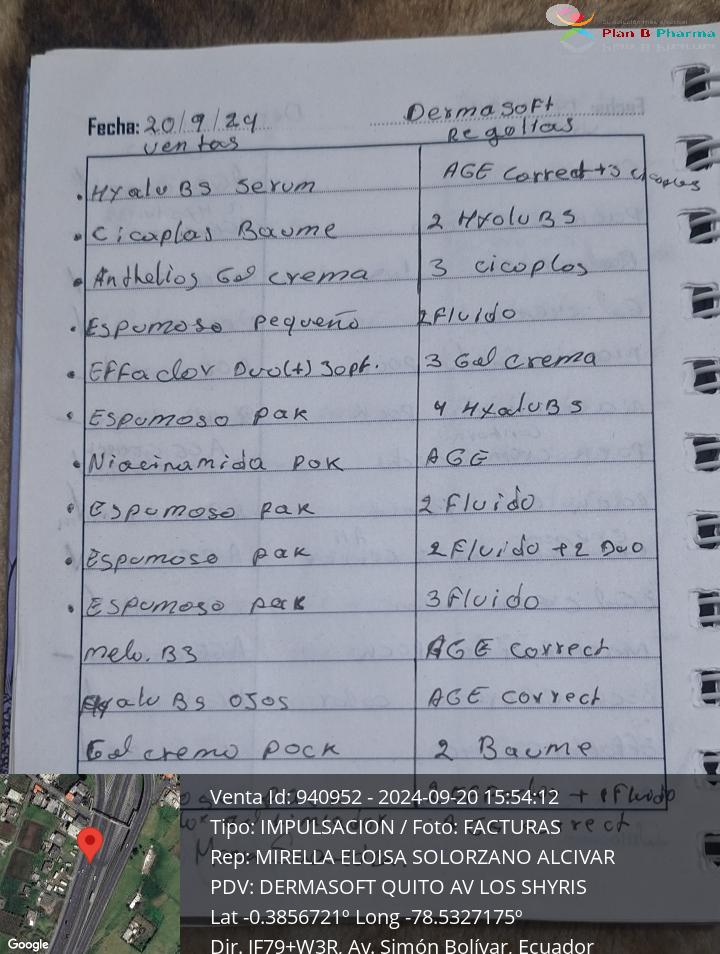 Plan B Pharma
Fecha: 20/9/24 DermaSoft
ventas Regalias
. Hyalu B5 serum AGE correct + 3 cicaplas
. Cicaplas Baume 2 Hyalu B5
. Anthelios Gel crema 3 cicaplas
. Espumoso pequeño 2 Fluido
. Effaclor Duo(+) 30pt. 3 Gel crema
. Espumoso pak 4 Hyalu B5
. Niacinamida pak AGE
. Espumoso pak 2 Fluido
. Espumoso pak 2 Fluido + 2 Duo
. Espumoso pak 3 Fluido
melo. B3 AGE correct
Hyalu B5 ojos AGE correct
Gel crema pack 2 Baume
+ 1 Fluido
Venta Id: 940952 - 2024-09-20 15:54:12
Tipo: IMPULSACION / Foto: FACTURAS
Rep: MIRELLA ELOISA SOLORZANO ALCIVAR
PDV: DERMASOFT QUITO AV LOS SHYRIS
Lat -0.3856721º Long -78.5327175º
Dir. JF79+W3R, Av. Simón Bolívar, Ecuador
Google